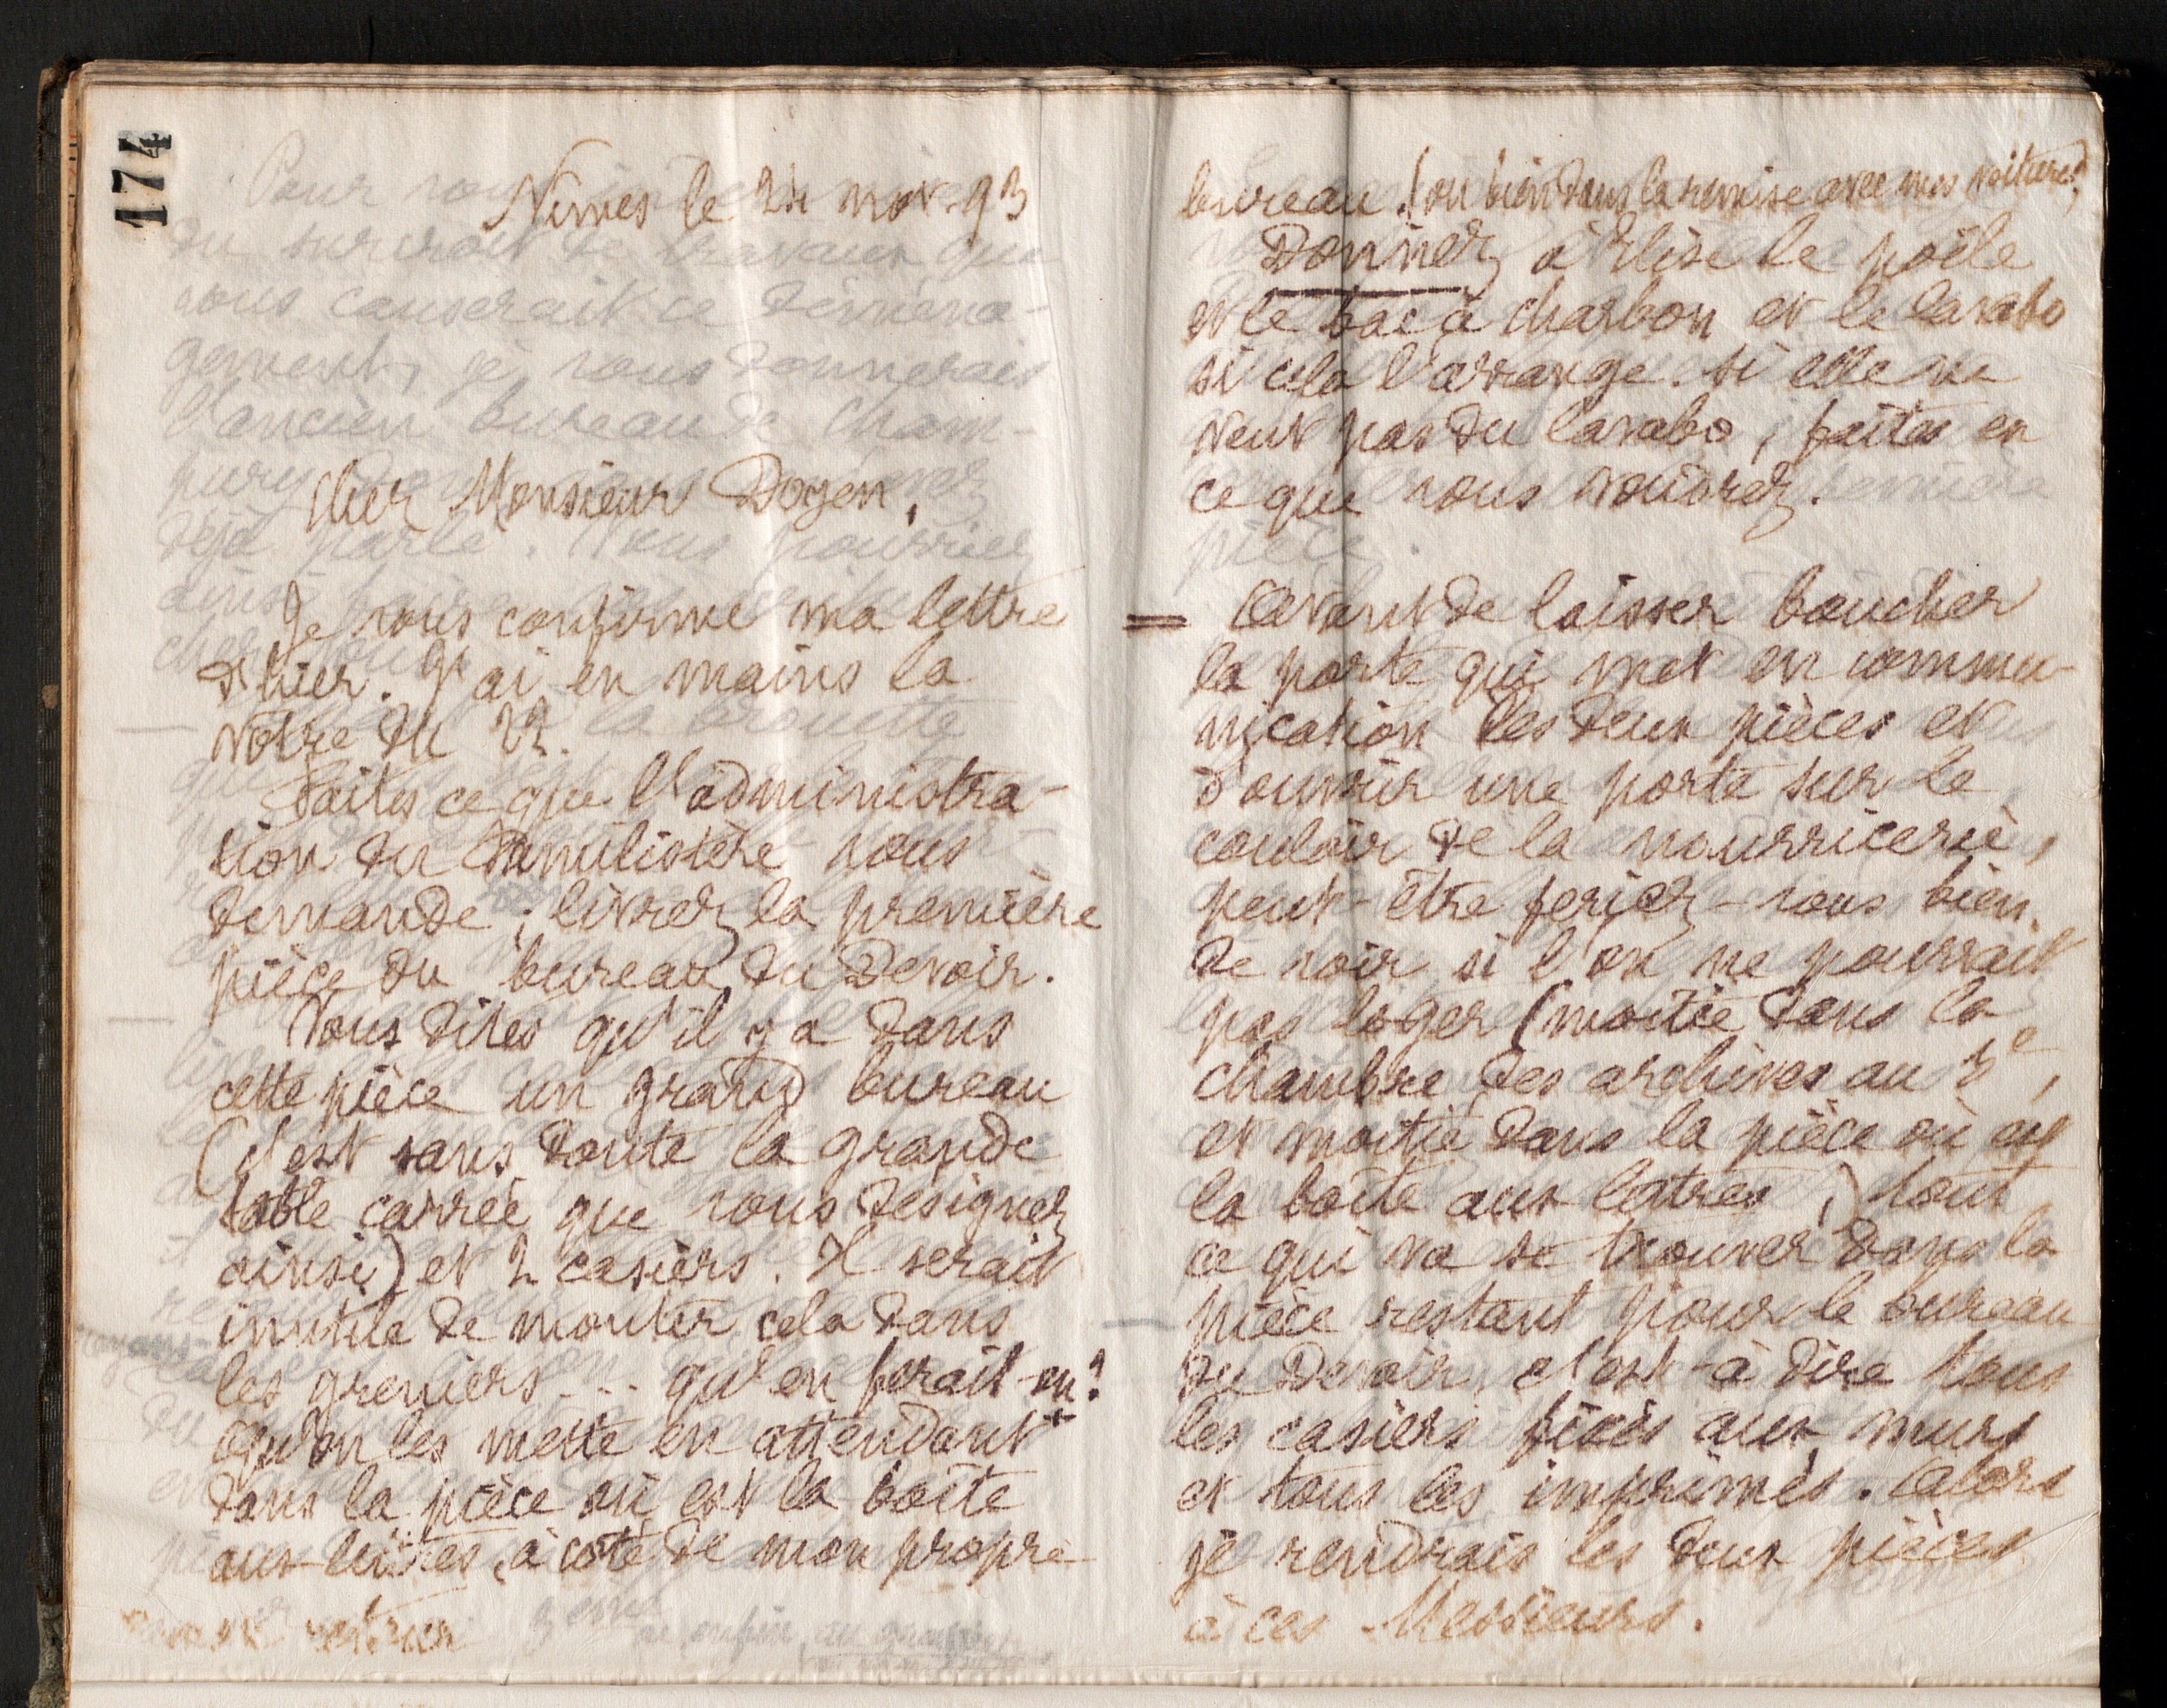 174
Nimes le 24 nov. 93
Cher Monsieur Doyen,
Je vous confirme ma lettre
d'hier. J'ai en mains la
vôtre du 22.
Faites ce que l'administra-
tion du Familistère vous
demande ; livrez la première
pièce du bureau du Devoir.
Vous dites qu'il y a dans
cette pièce un grand bureau
(c'est sans doute la grande
table carrée que vous désignez
ainsi) et 2 casiers. Il serait
inutile de monter cela dans
les greniers... qu'en ferait-on?
Qu'on les mette en attendant
dans la pièce où est la boîte
aux lettres, à côté de mon propre
bureau. (ou bien dans la remise avec mes voitures)
Donnez à Elise le poêle
et le bac à charbon et le lavabo
si cela l'arrange. Si elle ne
veut pas du lavabo, faites en
ce que vous voudrez.
= Avant de laisser boucher
la porte qui met en commu-
nication les deux pièces et
d'ouvrir une porte sur le
couloir de la nourricerie,
peut-être feriez-vous bien
de voir si l'on ne pourrait
pas loger (moitié dans la
chambre des archives au
et moitié dans la pièce où est
la boîte aux lettres,) tout
ce qui va se trouver dans la
pièce restant pour le bureau
du Devoir, c'est-à-dire tous
les casiers fixés aux murs
et tous les imprimés. Alors
je rendrais les deux pièces
à ces Messieurs.